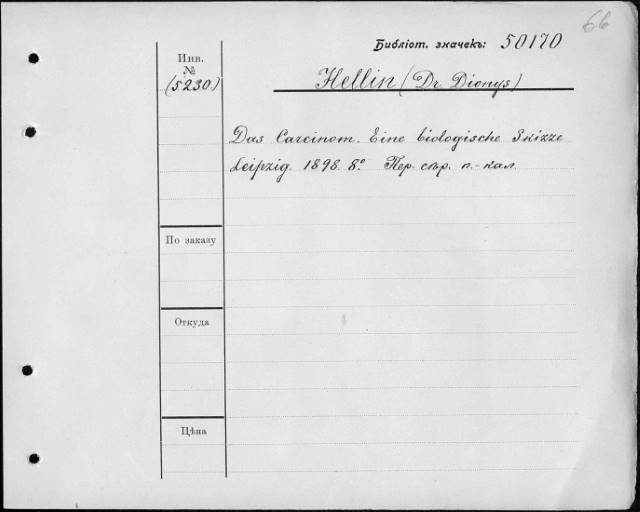 66
Библіот. значекъ: 50170
Инв.
№
(5230)
Hellin (Dr Dionys)
Das Carcinom. Eine biologische Skizze
Leipzig. 1898. 8º. Пер. сѣр. п.-кал.
По заказу
Откуда
Цѣна